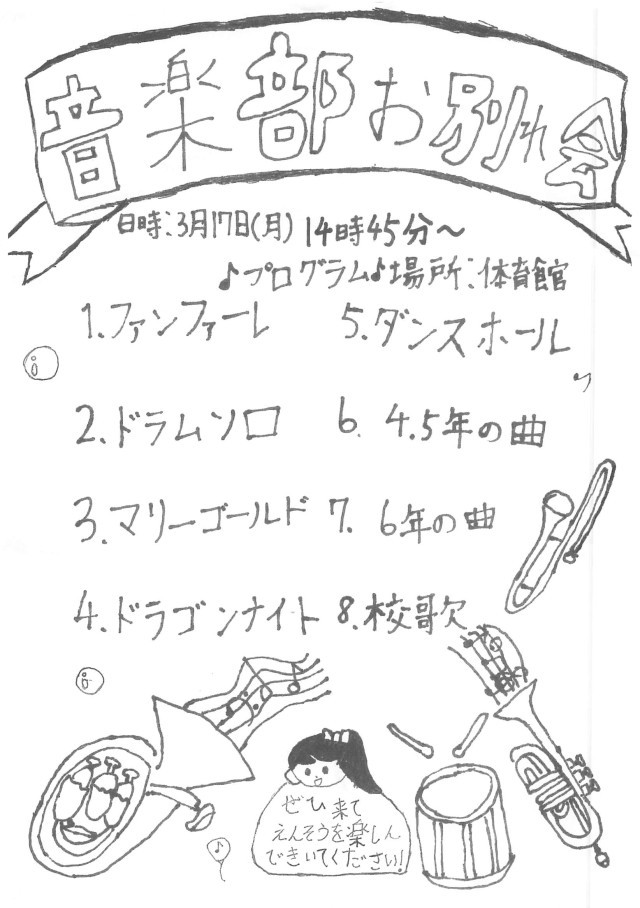 音楽部お別れ会
日時:3月17日(月) 14時45分〜
♪プログラム♪場所:体育館
1.ファンファーレ
5.ダンスホール
2.ドラムソロ
6. 4.5年の曲
3.マリーゴールド
7. 6年の曲
4.ドラゴンナイト
8.校歌
ぜひ来て
えんそうを楽しん
できいてください!